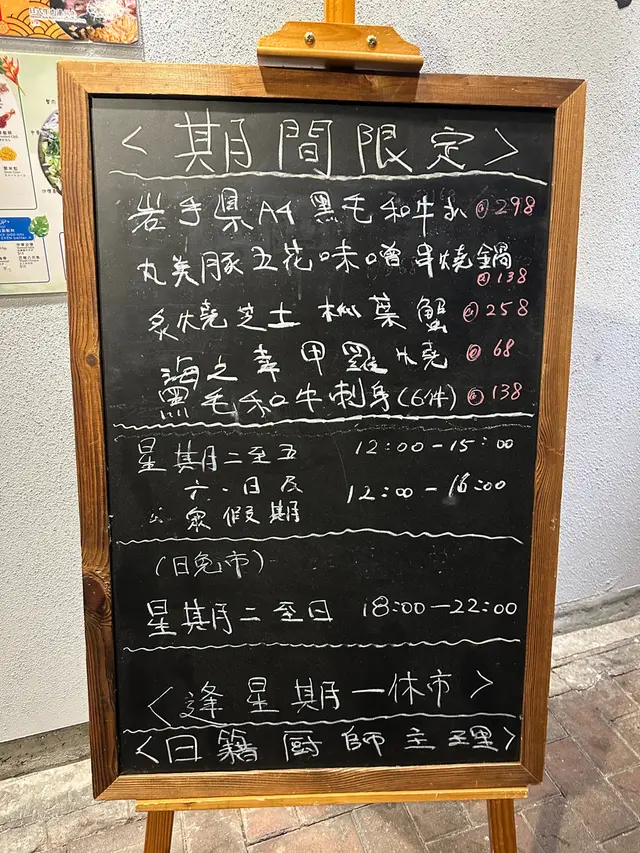 <期間限定>
岩手県A4黒毛和牛 298
丸美豚五花味噌串燒鍋
138
炙燒芝士松葉蟹 258
海之幸甲羅燒 68
黑毛和牛刺身(6件) 138
星期二至五 12:00-15:00
六、日及 12:00-16:00
公眾假期
(晚市)
星期二至日 18:00-22:00
<逢星期一休市>
<日籍厨師主理>